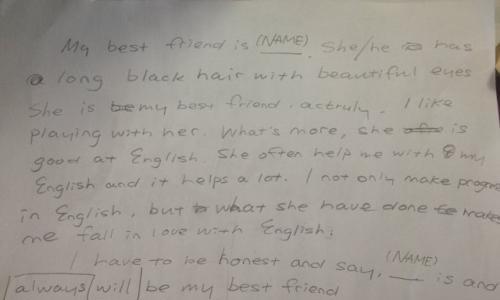 My best friend is (NAME). She/he has
a long black hair with beautiful eyes
She is my best friend. actruly. I like
playing with her. What's more, she is
good at English. She often help me with my
English and it helps a lot. I not only make progre
in English, but what she have done make
me fall in love with English.
I have to be honest and say, (NAME) is and
always will be my best friend